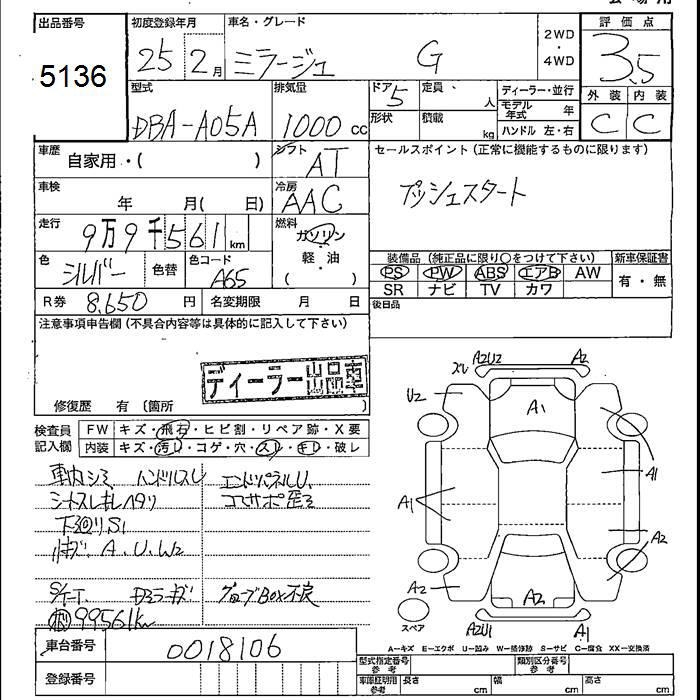 出品番号
5136
初度登録年月
25 2月
車名・グレード
ミラージュ G
2WD
・
4WD
評価点
3.5
外装 内装
C C
型式
DBA-A05A
排気量
1000 cc
ドア 5
形状
定員 人
積載 kg
ディーラー・並行
モデル年式 年
ハンドル 左・右
車歴
自家用・( )
シフト
AT
セールスポイント(正常に機能するものに限ります)
プッシュスタート
車検
年 月( 日)
冷房
AAC
走行
9万9千561km
燃料
ガソリン
軽・油
( )
色
シルバー
色替
色コード
A65
装備品(純正品に限り○をつけて下さい)
新車保証書
PS PW ABS エアB AW
SR ナビ TV カワ
有・無
R券 8,650 円
名変期限 月 日
後日品
注意事項申告欄(不具合内容等は具体的に記入して下さい)
ディーラー出品車
修復歴 有(箇所 )
検査員
記入欄
FW キズ・飛石・ヒビ割・リペア跡・X要
内装 キズ・汚れ・コゲ・穴・スレ・キレ・破レ
車内シミ ハンドルスレ
エンドパネルU.
シートスレ
コアサポ歪ミ
下廻りS1
A.U.W2
グローブBOX不良
99561km
車台番号
0018106
登録番号
ズレ
A2U2
A2
U2
A1
A1
A1
A2
A2
A2
スペア
A2U1
A1
A-キズ E-エクボ U-凹み W-補修跡 S-サビ C-腐食 XX-交換済
型式指定番号
参考
類別区分番号
参考
車庫証明用
参考
長さ cm
幅 cm
高さ cm